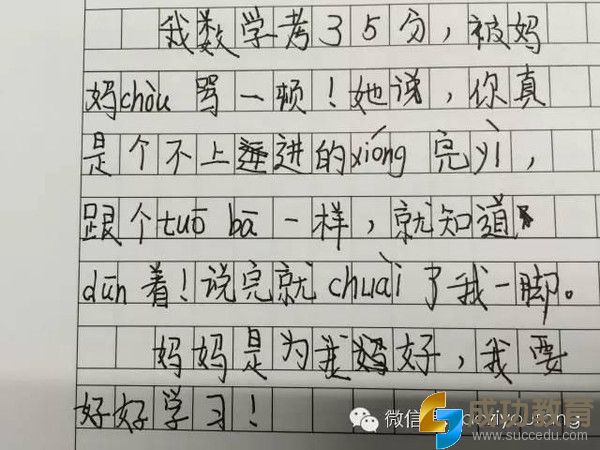 我数学考35分，被妈
妈chòu 骂一顿！她说，你真
是个不上进的xióng 完yì，
跟个tuō bā 一样，就知道
dūn着！说完就chuài了我一脚。
妈妈是为我好，我要
好好学习！
微信
成功教育
www.succedu.com